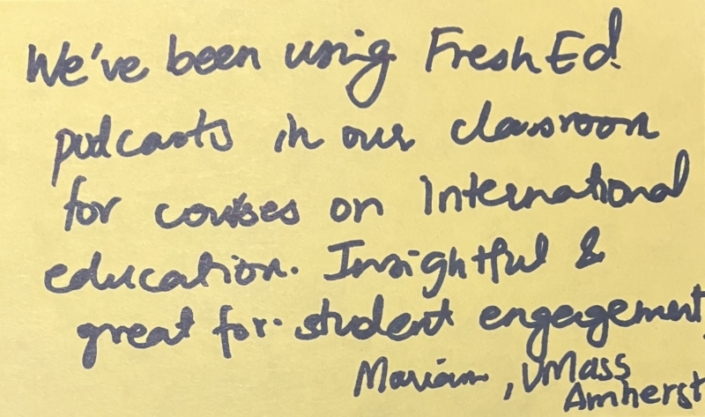 We've been using FreshEd
podcasts in our classroom
for courses on International
education. Insightful &
great for student engagement
Mariam, UMass
Amherst